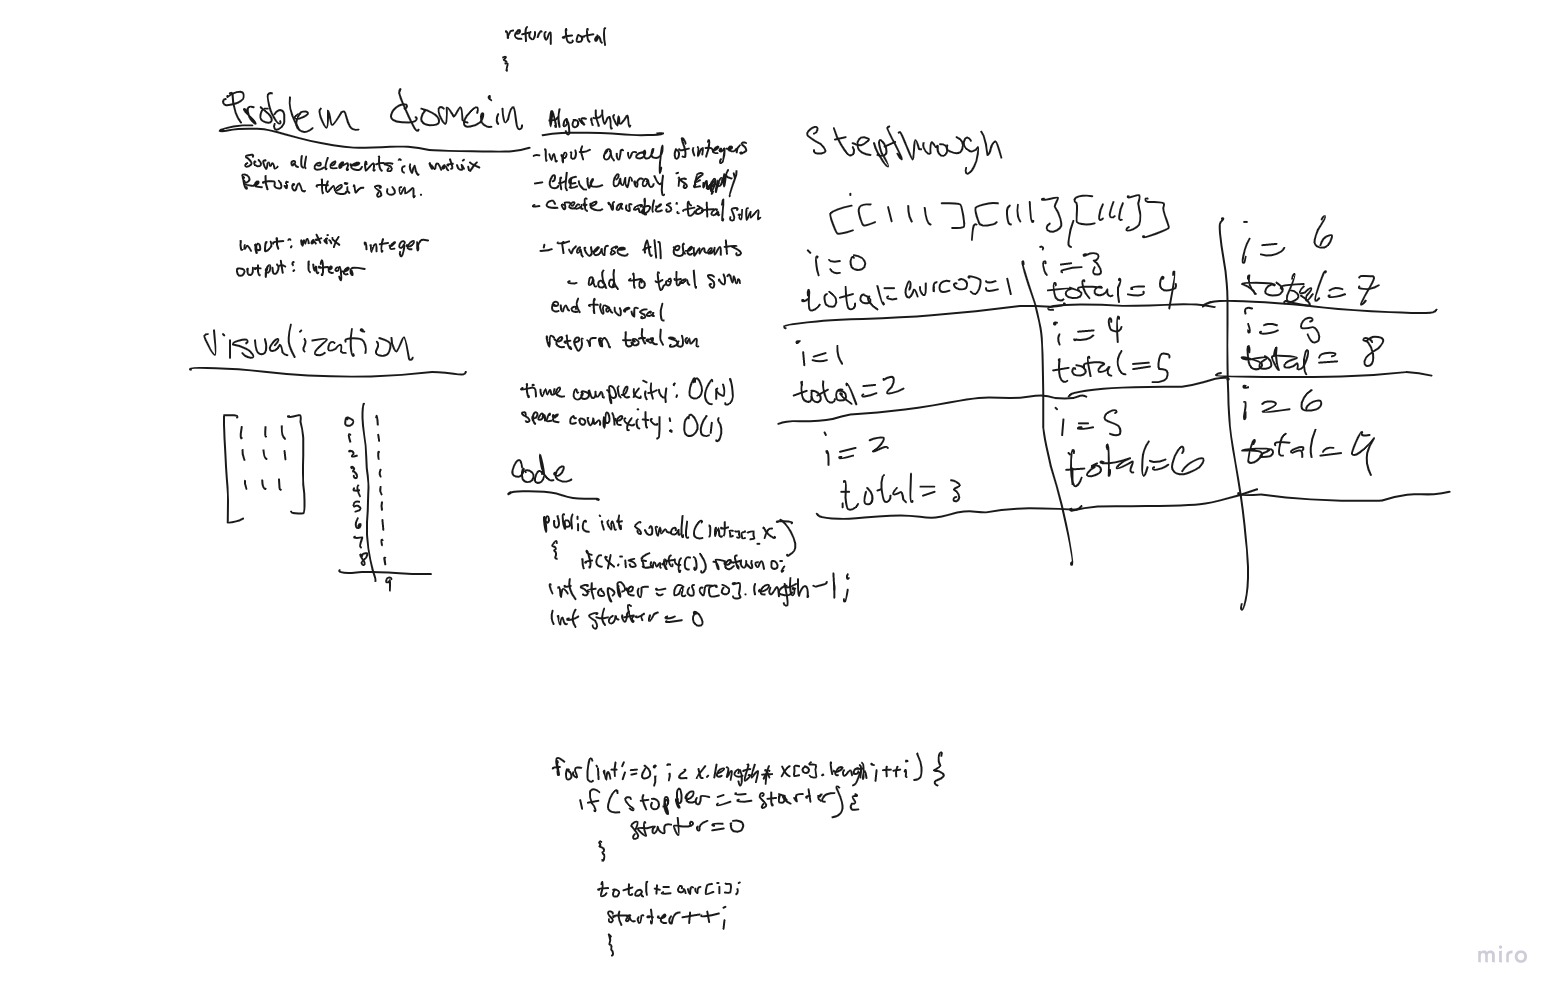 return total
}
Problem domain
Sum all elements in matrix
Return their sum.
input: matrix integer
output: integer
Visualization
1 1 1
1 1 1
1 1 1
0 1
1 1
2 1
3 1
4 1
5 1
6 1
7 1
8 1
9
Algorithm
- Input array of integers
- CHECK array is Empty
- Create variables: total sum
- Traverse All elements
- add to total sum
end traversal
return total sum
time complexity: O(N)
space complexity: O(1)
Code
public int sumall(int[][] x)
{ if(x.isEmpty()) return 0;
int stopper = arr[0].length-1;
int starter = 0
for(int i=0; i < x.length * x[0].length; ++i) {
if (stopper == starter) {
starter = 0
}
total += arr[i];
starter++;
}
Stepthrough
[[111],[111],[111]]
i=0
total=arr[0]=1
i=1
total=2
i=2
total=3
i=3
total=4
i=4
total=5
i=5
total=6
i=6
total=7
i=5
total=8
i=6
total=9
miro